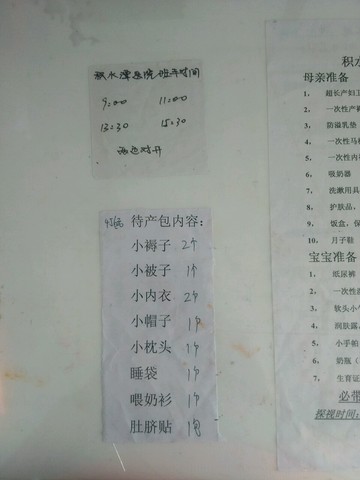 积水潭医院班车时间
9:00 11:00
13:30 15:30
两边对开
待产包内容:
小褥子 2个
小被子 1个
小内衣 2个
小帽子 1个
小枕头 1个
睡袋 1个
喂奶衫 1个
肚脐贴 1包
积水
母亲准备
1、 超长产妇卫
2、 一次性产褥
3、 防溢乳垫
4、 一次性马桶
5、 一次性内裤
6、 吸奶器
7、 洗漱用具
8、 护肤品,
9、 饭盒,保
10、 月子鞋
宝宝准备
1、 纸尿裤
2、 一次性
3、 软头小
4、 润肤露
5、 小手帕
6、 奶瓶(
7、 生育证
必带
探视时间: